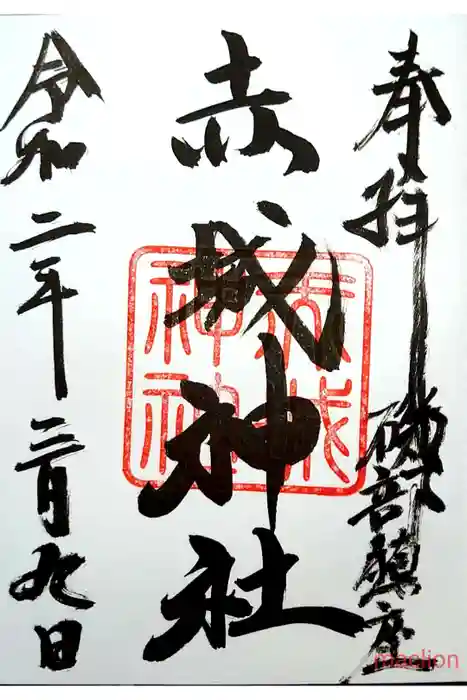 奉拝
磯部鎮座
赤城神社
赤城
神社
令和二年三月九日
maelion